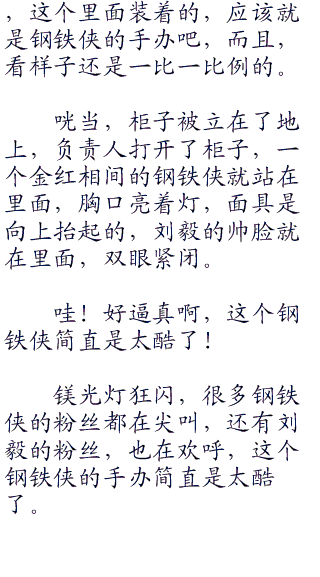 ，这个里面装着的，应该就
是钢铁侠的手办吧，而且，
看样子还是一比一比例的。
咣当，柜子被立在了地
上，负责人打开了柜子，一
个金红相间的钢铁侠就站在
里面，胸口亮着灯，面具是
向上抬起的，刘毅的帅脸就
在里面，双眼紧闭。
哇！好逼真啊，这个钢
铁侠简直是太酷了！
镁光灯狂闪，很多钢铁
侠的粉丝都在尖叫，还有刘
毅的粉丝，也在欢呼，这个
钢铁侠的手办简直是太酷
了。